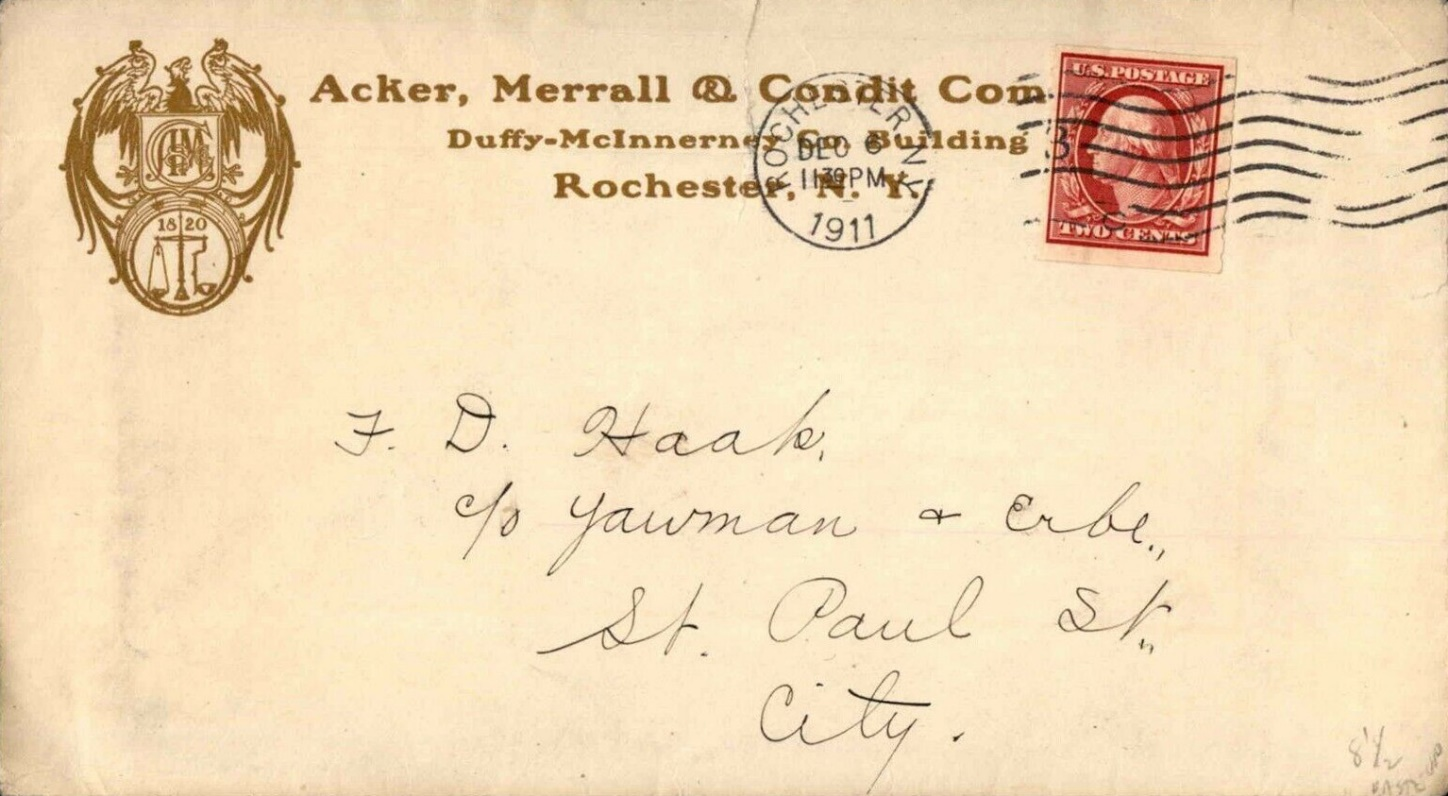 Acker, Merrall & Condit Com
Duffy-McInnerney Co. Building
Rochester, N. Y.
1820
ROCHESTER N.Y.
DEC 6
1130PM
1911
U.S. POSTAGE
TWO CENTS
3
F. D. Haak,
c/o Yawman & Erbe.,
St. Paul St.,
City.
8 1/2